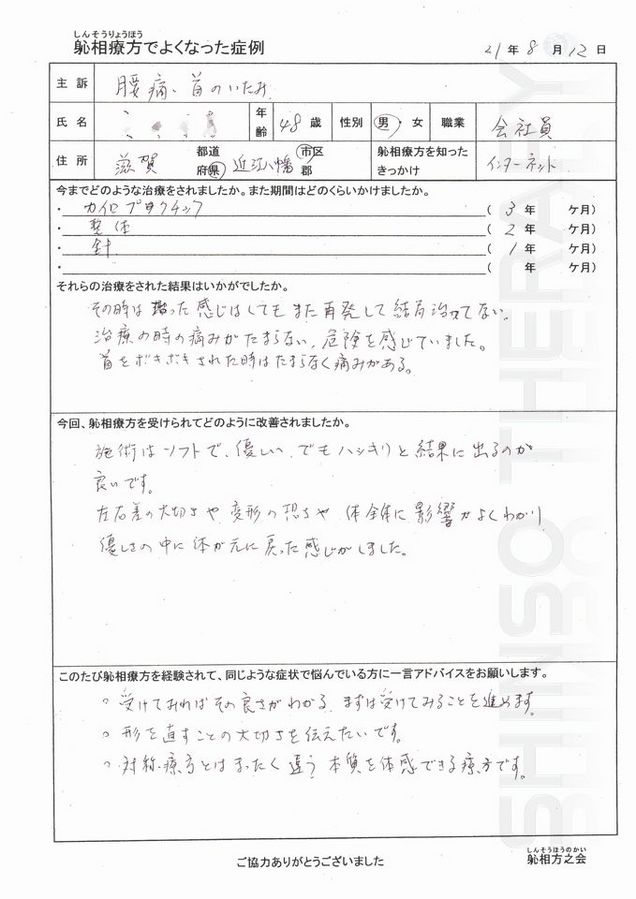 しんそうりょうほう
躮相療方でよくなった症例 21年8月12日
主訴 腰痛、首のいたみ
氏名 年齢 48歳 性別 男・女 職業 会社員
住所 滋賀 都道府県 近江八幡 市区郡 躮相療方を知ったきっかけ インターネット
今までどのような治療をされましたか。また期間はどのくらいかけましたか。
・カイロプラクチック (3年 ケ月)
・整体 (2年 ケ月)
・針 (1年 ケ月)
・ ( 年 ケ月)
それらの治療をされた結果はいかがでしたか。
その時は治った感じはしてもまた再発して結局治ってない。
治療の時の痛みがたまらない、危険を感じていました。
首をボキボキされた時はたまらなく痛みがある。
今回、躮相療方を受けられてどのように改善されましたか。
施術はソフトで、優しい、でもハッキリと結果に出るのが
良いです。
左右差の大切さや変形の恐さや体全体に影響がよくわかり
優しさの中に体が元に戻った感じがしました。
このたび躮相療方を経験されて、同じような症状で悩んでいる方に一言アドバイスをお願いします。
○受けてみればその良さがわかる、まずは受けてみることを進めます。
○形を直すことの大切さを伝えたいです。
○対称療方とはまったく違う本質を体感できる療方です。
ご協力ありがとうございました
しんそうほうのかい
躮相方之会
SHINSO THERAPY